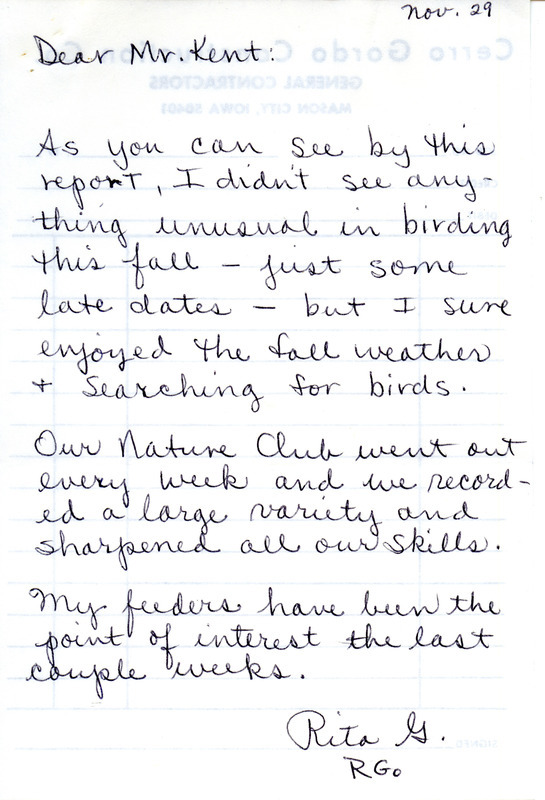 Nov. 29
Dear Mr. Kent:
As you can see by this
report, I didn't see any-
thing unusual in birding
this fall – just some
late dates – but I sure
enjoyed the fall weather
+ searching for birds.
Our Nature Club went out
every week and we record-
ed a large variety and
sharpened all our skills.
My feeders have been the
point of interest the last
couple weeks.
Rita G.
RGo
Cerro Gordo Construction Co
GENERAL CONTRACTORS
MASON CITY, IOWA 50401
SIGNED